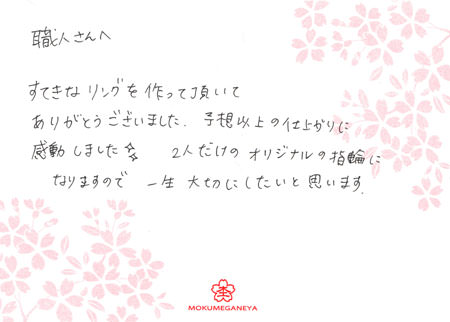 職人さんへ
すてきな リングを 作って頂いて
ありがとうございました. 予想以上の仕上がりに
感動しました 2人だけの オリジナルの指輪に
なりますので 一生 大切にしたいと思います.
MOKUMEGANEYA